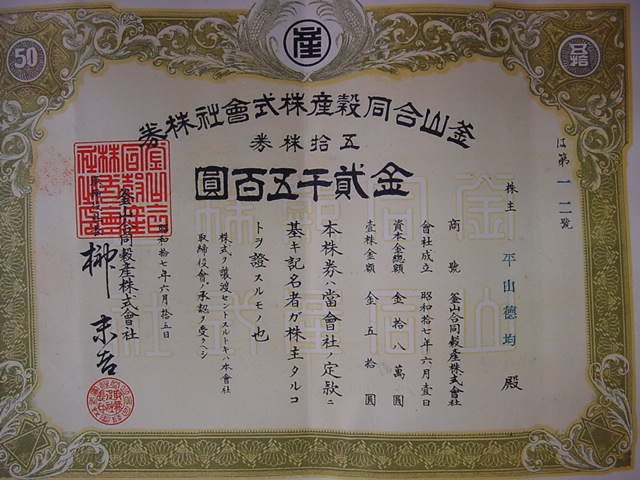 50
産
五拾
釜山合同穀産株式會社株券
五拾株券
金貳千五百圓
は第一二號
株主 平山德均 殿
商號 釜山合同穀産株式會社
會社成立 昭和拾七年六月壹日
資本金總額 金拾八萬圓
壹株金額 金五拾圓
本株券ハ當會社ノ定款ニ
基キ記名者ガ株主タルコ
トヲ證スルモノ也
株式ヲ譲渡セントスルトキハ本會社
取締役會ノ承認ヲ受クベシ
昭和拾七年六月拾五日
釜山合同穀産株式會社